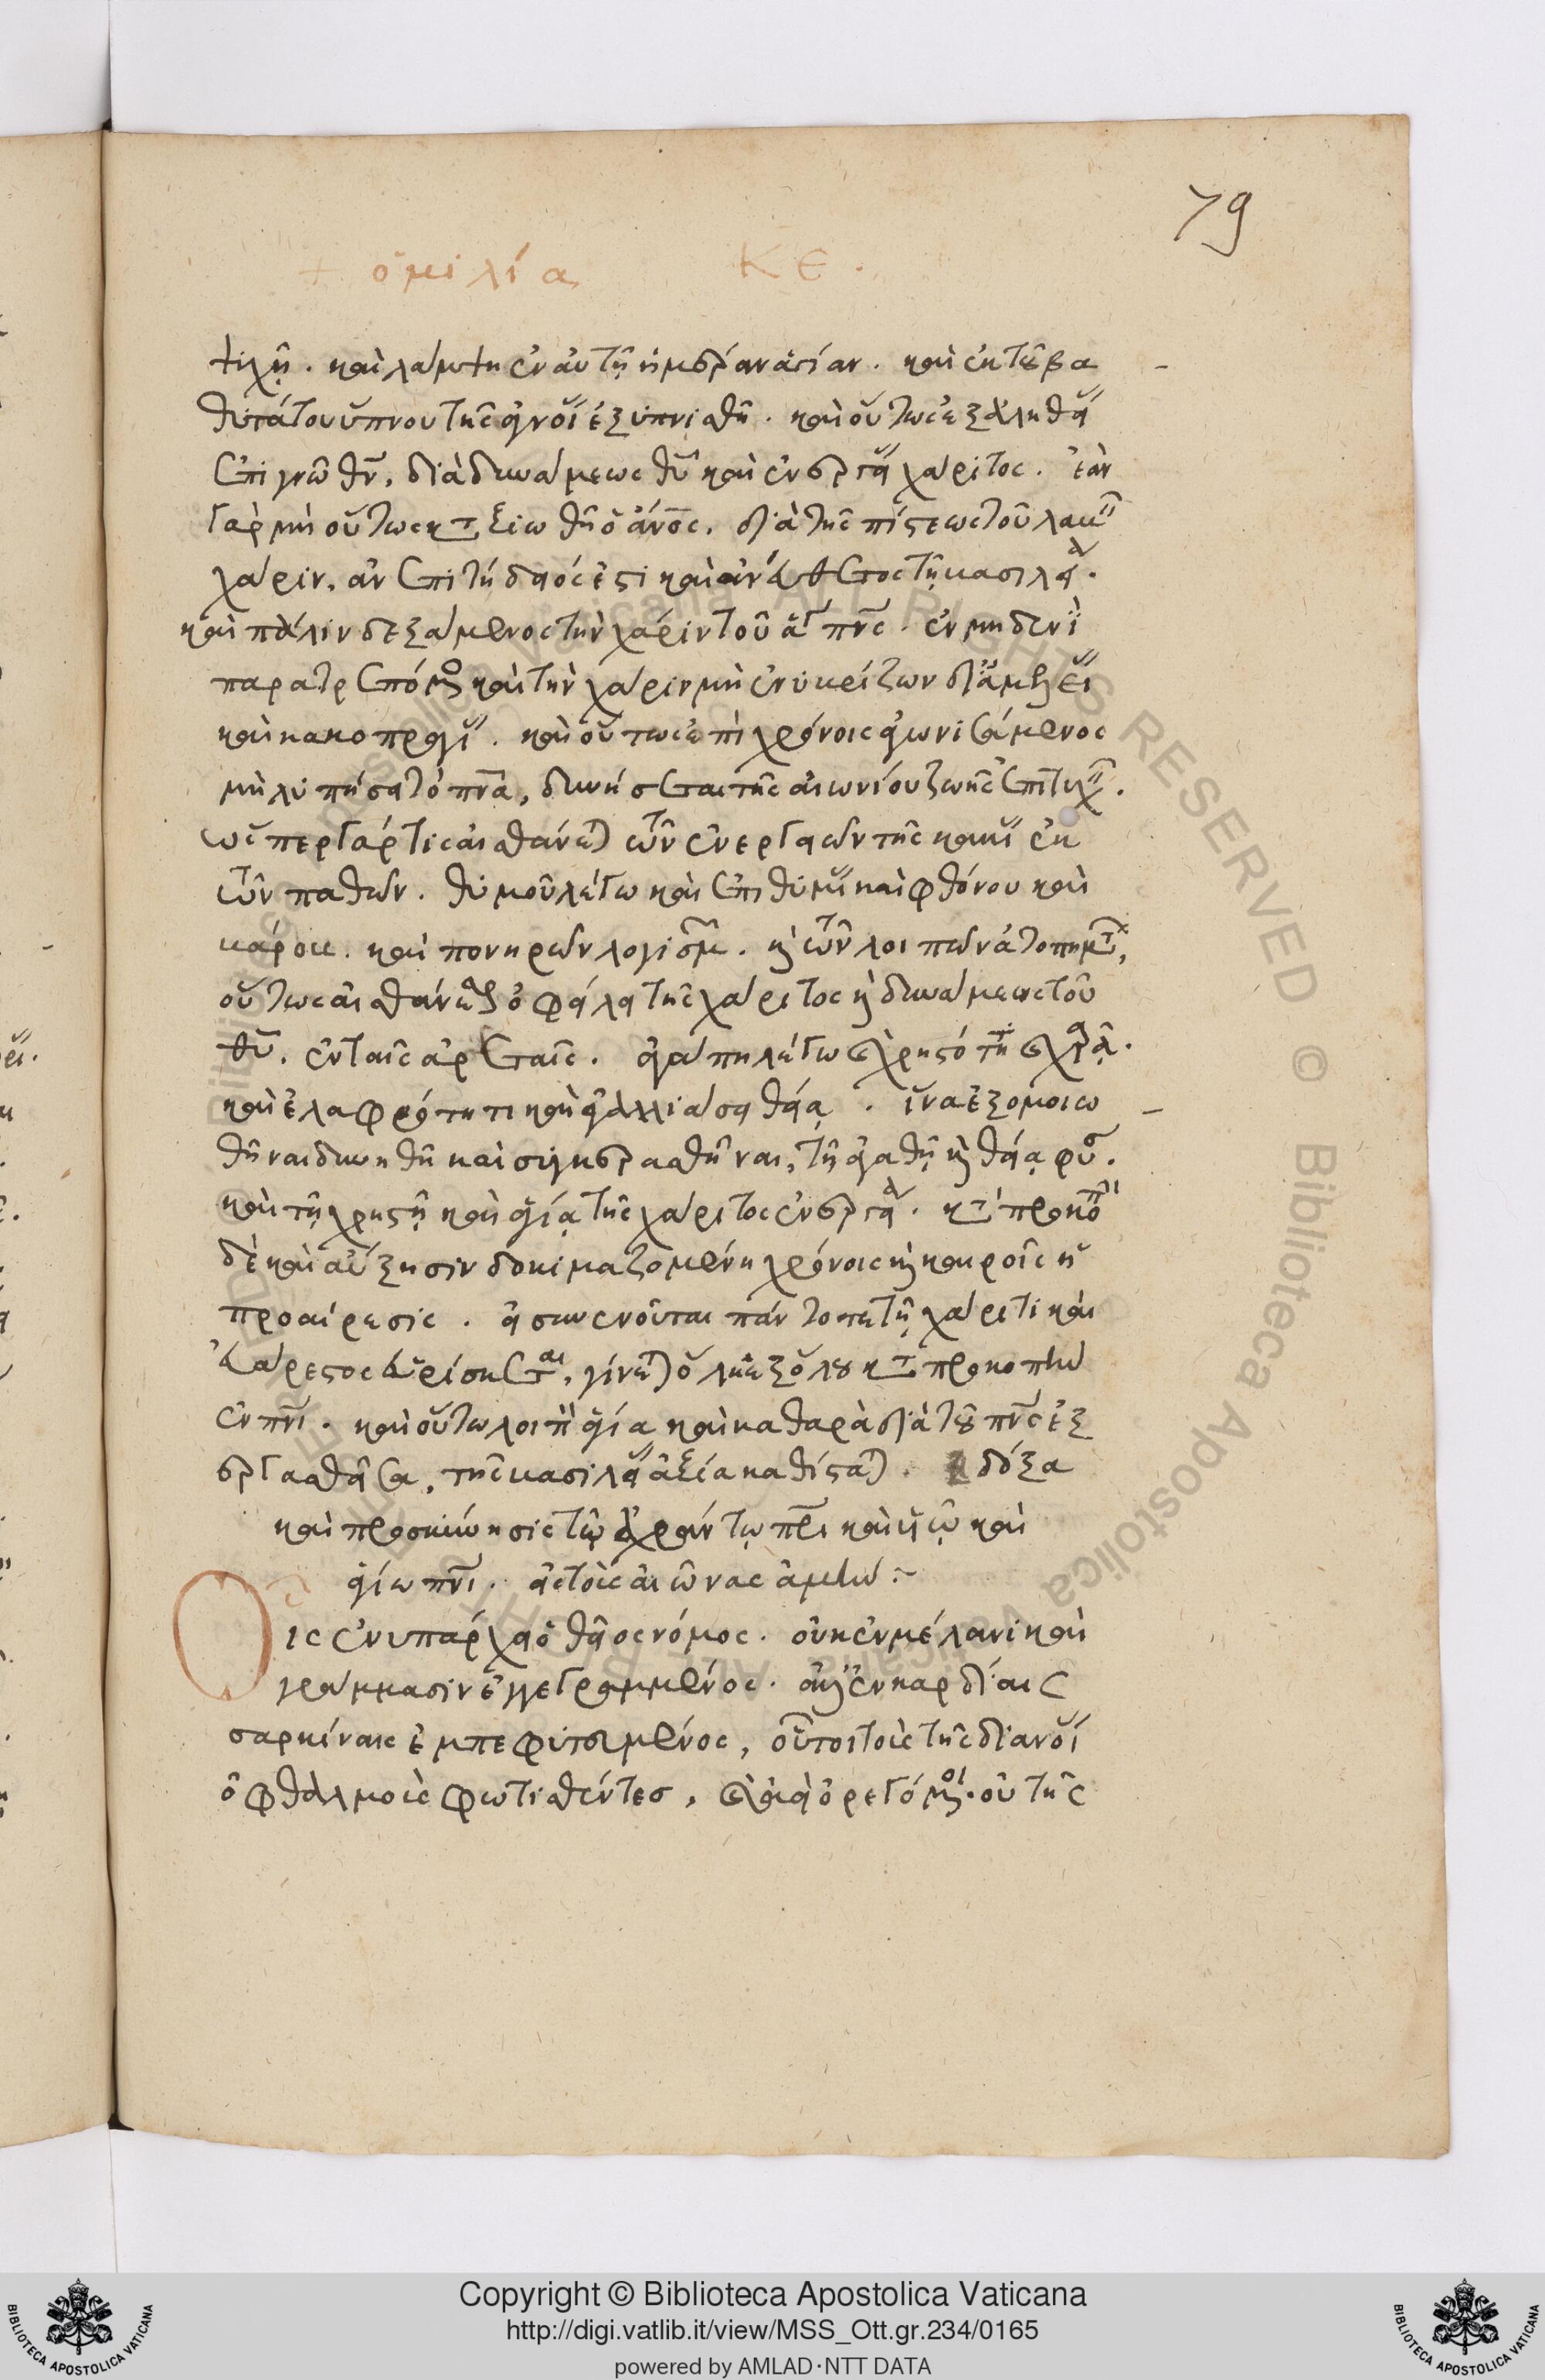 79
+ ὁμιλία ΚΕ.
ψυχῇ. καὶ λάμψη ἐν αὐτῇ ἡμέραν ἁγίαν. καὶ ἐκ τοῦ βα
θυτάτου ὕπνου τῆς ἀγνοί ἐξυπνισθῆ. καὶ οὕτως ἐξ ἀληθεί
ἐπιγνῶ θν, διὰ δυνάμεως θυ καὶ ἐνεργεί χάριτος. ἐὰν
γὰρ μὴ οὕτως καταξιωθῆ ὁ ἄνος, διὰ τῆς πίστεως τοῦ λαβεῖν
χάριν, ἀνεπιτήδειός ἐστι καὶ ἀνεύθετος τῇ βασιλεία.
καὶ πάλιν δεξάμενος τὴν χάριν τοῦ ἁγ πνς. ἐν μηδενὶ
παρατρεπόμενος καὶ τὴν χάριν μὴ ἐνυβρίζων δι' ἀμελεί
καὶ κακοπραγί. καὶ οὕτως ἐπὶ χρόνοις ἀγωνισάμενος
μὴ λυπῆσαι τὸ πνα, δυνήσεται τῆς αἰωνίου ζωῆς ἐπιτυχεῖν.
ὥσπερ γάρ τις αἰσθάνεται τῶν ἐνεργειῶν τῆς κακί ἐκ
τῶν παθῶν. θυμοῦ λέγω καὶ ἐπιθυμί καὶ φθόνου καὶ
βάρους. καὶ πονηρῶν λογισμ. καὶ τῶν λοιπῶν ἀτοπημτ,
οὕτως αἰσθάνεσθαι ὀφείλει τῆς χάριτος καὶ δυνάμεως τοῦ
θυ. ἐν ταῖς ἀρεταῖς. ἀγάπη λέγω ἐν χρηστότητι ἐν χαρᾶ.
καὶ ἐλαφρότητι καὶ ἀγαλλιάσει θεία. ἵνα ἐξομοιω
θῆναι δυνηθῆ καὶ συγκερασθῆναι, τῇ ἀγαθῇ καὶ θεία φύσ.
καὶ τῇ χρηστῇ καὶ ἁγία τῆς χάριτος ἐνεργεία. κατὰ προκοπὴ
δὲ καὶ αὔξησιν δοκιμαζομένη χρόνοις καὶ καιροῖς ἡ
προαίρεσις. εἰ συνενοῦται πάντοτε τῇ χάριτι καὶ
εὐάρεστος εὑρίσκεται, γίνεται ὅλη ἐξ ὅλου κατὰ προκοπὴν
ἐν πνι. καὶ οὕτω λοιπ ἁγία καὶ καθαρὰ διὰ τοῦ πνς ἐξ
εργασθεῖσα, τῆς βασιλεί ἀξία καθίσταται. δόξα
καὶ προσκύνησις τῷ ἀχράντω πρι καὶ υἱῷ καὶ
ἁγίω πνι. εἰς τοὺς αἰῶνας ἀμήν:~
Οἷς ἐνυπάρχει ὁ θεῖος νόμος. οὐκ ἐν μέλανι καὶ
γράμμασιν ἐγγεγραμμένος. ἀλλ' ἐν καρδίαις
σαρκίναις ἐμπεφυτευμένος, οὗτοι τοὺς τῆς διανοί
ὀφθαλμοὺς φωτισθέντες, καὶ ἀεὶ ὀρεγόμενοι. οὐ τῆς
Copyright © Biblioteca Apostolica Vaticana
http://digi.vatlib.it/view/MSS_Ott.gr.234/0165
powered by AMLAD·NTT DATA